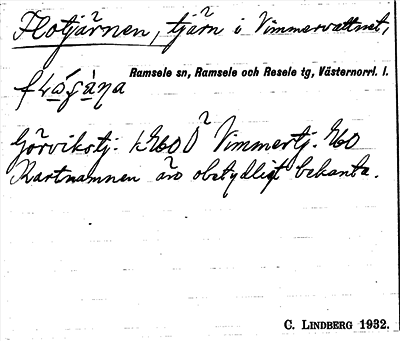 Flotjärnen, tjärn i Vimmervattnet,
Ramsele sn, Ramsele och Resele tg, Västernorrl. l.
Görvikstj. kE60 Ö Vimmertj. E60
Kartnamnen äro obetydligt bekanta.
C. LINDBERG 1932.